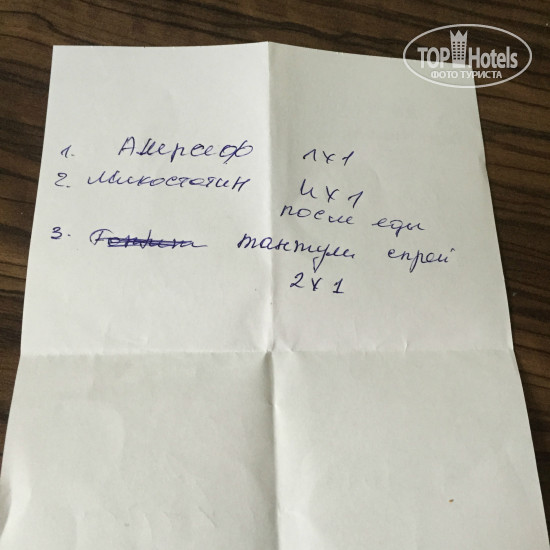 TOP Hotels
ФОТО ТУРИСТА
1. 1x1
2. Микостатин 4x1
после еды
3. тантум спрей
2x1